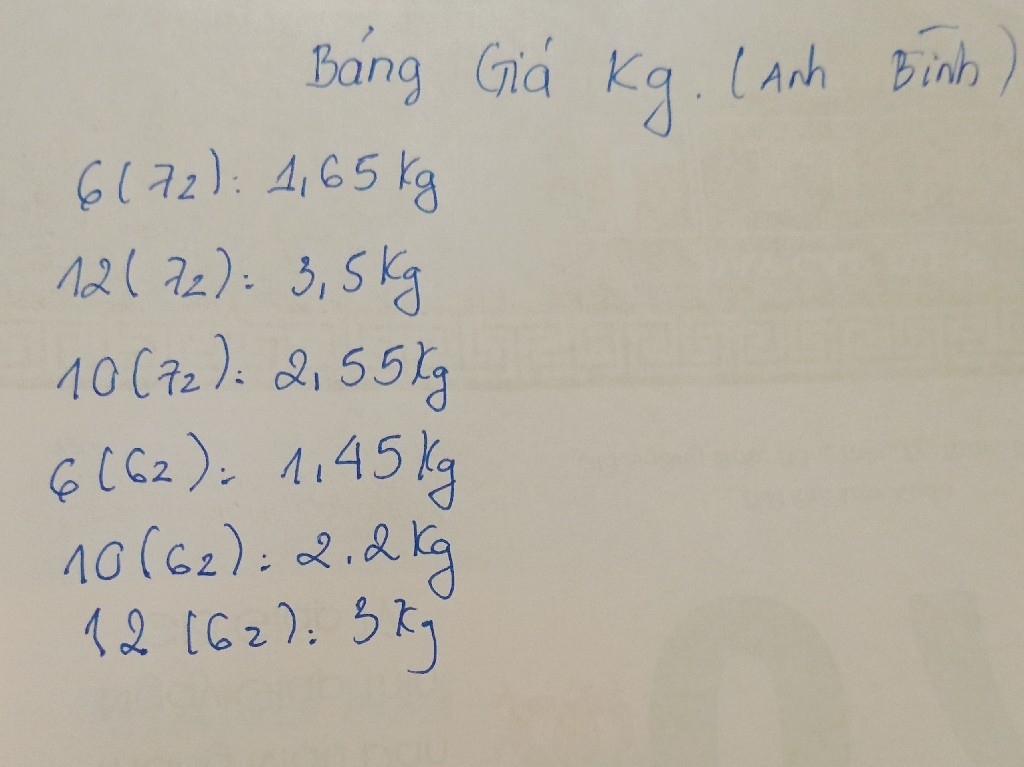 Bảng Giá Kg. (Anh Bình)
6(7z): 1,65 Kg
12(7z): 3,5 Kg
10(7z): 2,55 Kg
6(6z): 1,45 Kg
10(6z): 2.2 Kg
12(6z): 3 Kg